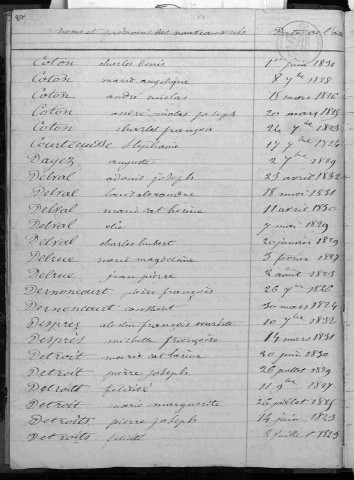 noms et prénoms des nouveaux nés Date de l'acte
Colon charles Denis 1er juin 1831
Colon marie angelique 8 7bre 1828
Colon andré nicolas 15 mars 1826
Coton andré nicolas joseph 20 mars 1825
Coton charles françois 24 7bre 1823
Courtecuisse Stéphanie 17 7bre 1824
Dayez auguste 2 7bre 1829
Delval adonis joseph 23 avril 1832
Delval louis alexandre 18 mai 1831
Delval marie catherine 11 avril 1830
Delval elie 7 mai 1829
Delval charles hubert 20 janvier 1829
Delrue marie magdeleine 5 fevrier 1827
Delrue jean pierre 2 août 1823
Dernoncourt pierre françois 26 7bre 1826
Dernoncourt constant 30 mars 1824
Després françois 10 7bre 1832
Després 14 mars 1831
Detroit marie catherine 30 juin 1830
Detroit pierre joseph 26 juillet 1829
Detroits félicité 11 9bre 1827
Detroit marie marguerite 26 juillet 1825
Detroits pierre joseph 14 juin 1823
Detroits juillet 1823